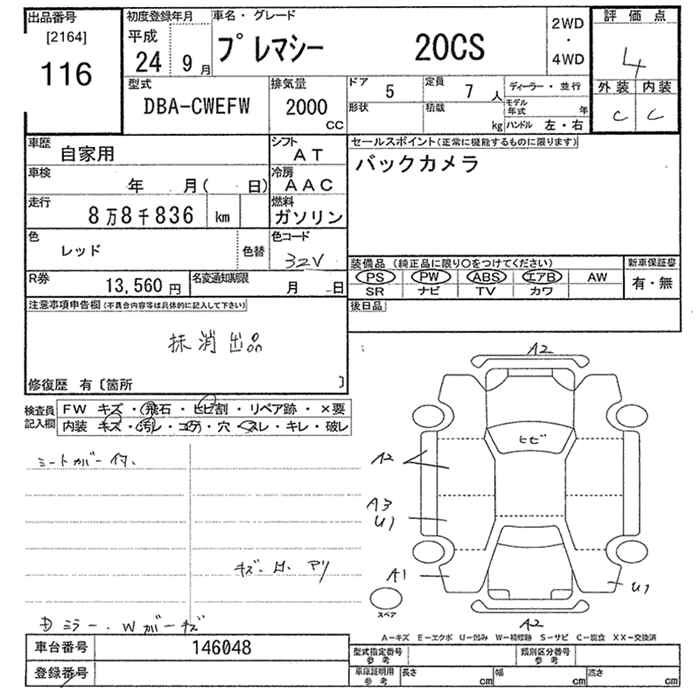 出品番号 初度登録年月 車名・グレード 評価点
[2164] 平成 2WD
116 24年 9月 プレマシー 20CS ・ 4WD 4
型式 排気量 ドア 5 定員 7人 ディーラー・並行 外装 内装
DBA-CWEFW 2000 CC 形状 積載 kg モデル年式 年 C C
ハンドル 左・右
車歴 自家用 シフト AT セールスポイント(正常に機能するものに限ります)
車検 年 月( 日) 冷房 AAC バックカメラ
走行 8万8千836 km 燃料 ガソリン
色 レッド 色替 色コード 32V
装備品 (純正品に限り○をつけてください) 新車保証書
PS PW ABS エアB AW 有・無
R券 13,560円 名変通知期限 月 日 SR ナビ TV カワ
注意事項申告欄(不具合内容等は具体的に記入して下さい) 後日品
抹消出品
修復歴 有〔箇所 〕
検査員記入欄 FW キズ・飛石・ヒビ割・リペア跡・×要
内装 キズ・汚レ・コゲ・穴・スレ・キレ・破レ
シートカバー付、
キズ・凹・アリ
ミラー・Wガーキズ
A2
ヒビ
A2
A3
U1
A1 U1
スペア
A2
A-キズ E-エクボ U-凹み W-補修跡 S-サビ C-腐食 XX-交換済
車台番号 146048 型式指定番号 参考 類別区分番号 参考
登録番号 車庫証明用 参考 長さ cm 幅 cm 高さ cm